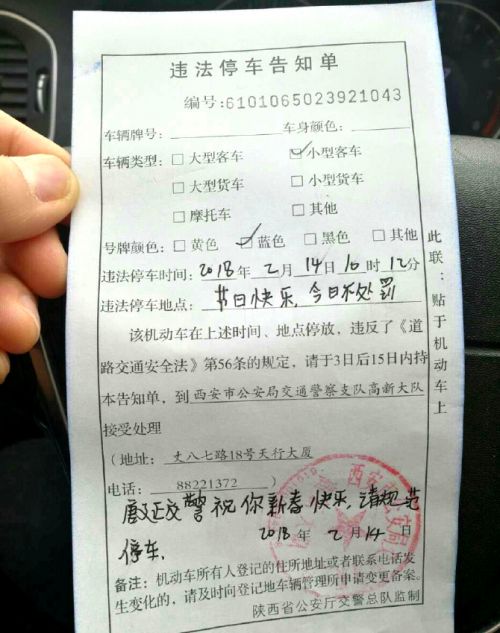 违法停车告知单
编号:6101065023921043
车辆牌号: 车身颜色:
车辆类型: □ 大型客车 ☑ 小型客车
□ 大型货车 □ 小型货车
□ 摩托车 □ 其他
号牌颜色: □ 黄色 ☑ 蓝色 □ 黑色 □ 其他
违法停车时间: 2018 年 2 月 14 日 10 时 12 分
违法停车地点: 节日快乐, 今日不处罚
该机动车在上述时间、地点停放，违反了《道
路交通安全法》第56条的规定，请于3日后15日内持
本告知单，到西安市公安局交通警察支队高新大队
接受处理
（地址: 丈八七路18号天行大厦
电话: 88221372 ）
交警祝你新春快乐,请规范
停车.
2018 年 2 月 14 日
备注: 机动车所有人登记的住所地址或者联系电话发
生变化的，请及时向登记地车辆管理所申请变更备案。
陕西省公安厅交警总队监制
此联：贴于机动车上